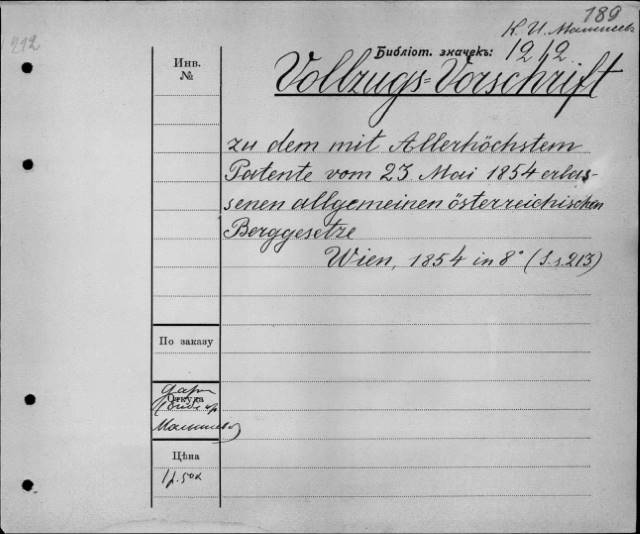 189
К. И.
212
Библіот. значекъ: 1212
Инв.
№
Vollzugs=Vorschrift
zu dem mit Allerhöchstem
Patente vom 23 Mai 1854 erlas-
senen allgemeinen österreichischen
Berggesetze
Wien, 1854 in 8° (S. 213)
По заказу
Откуда
Цѣна
1р. 50к